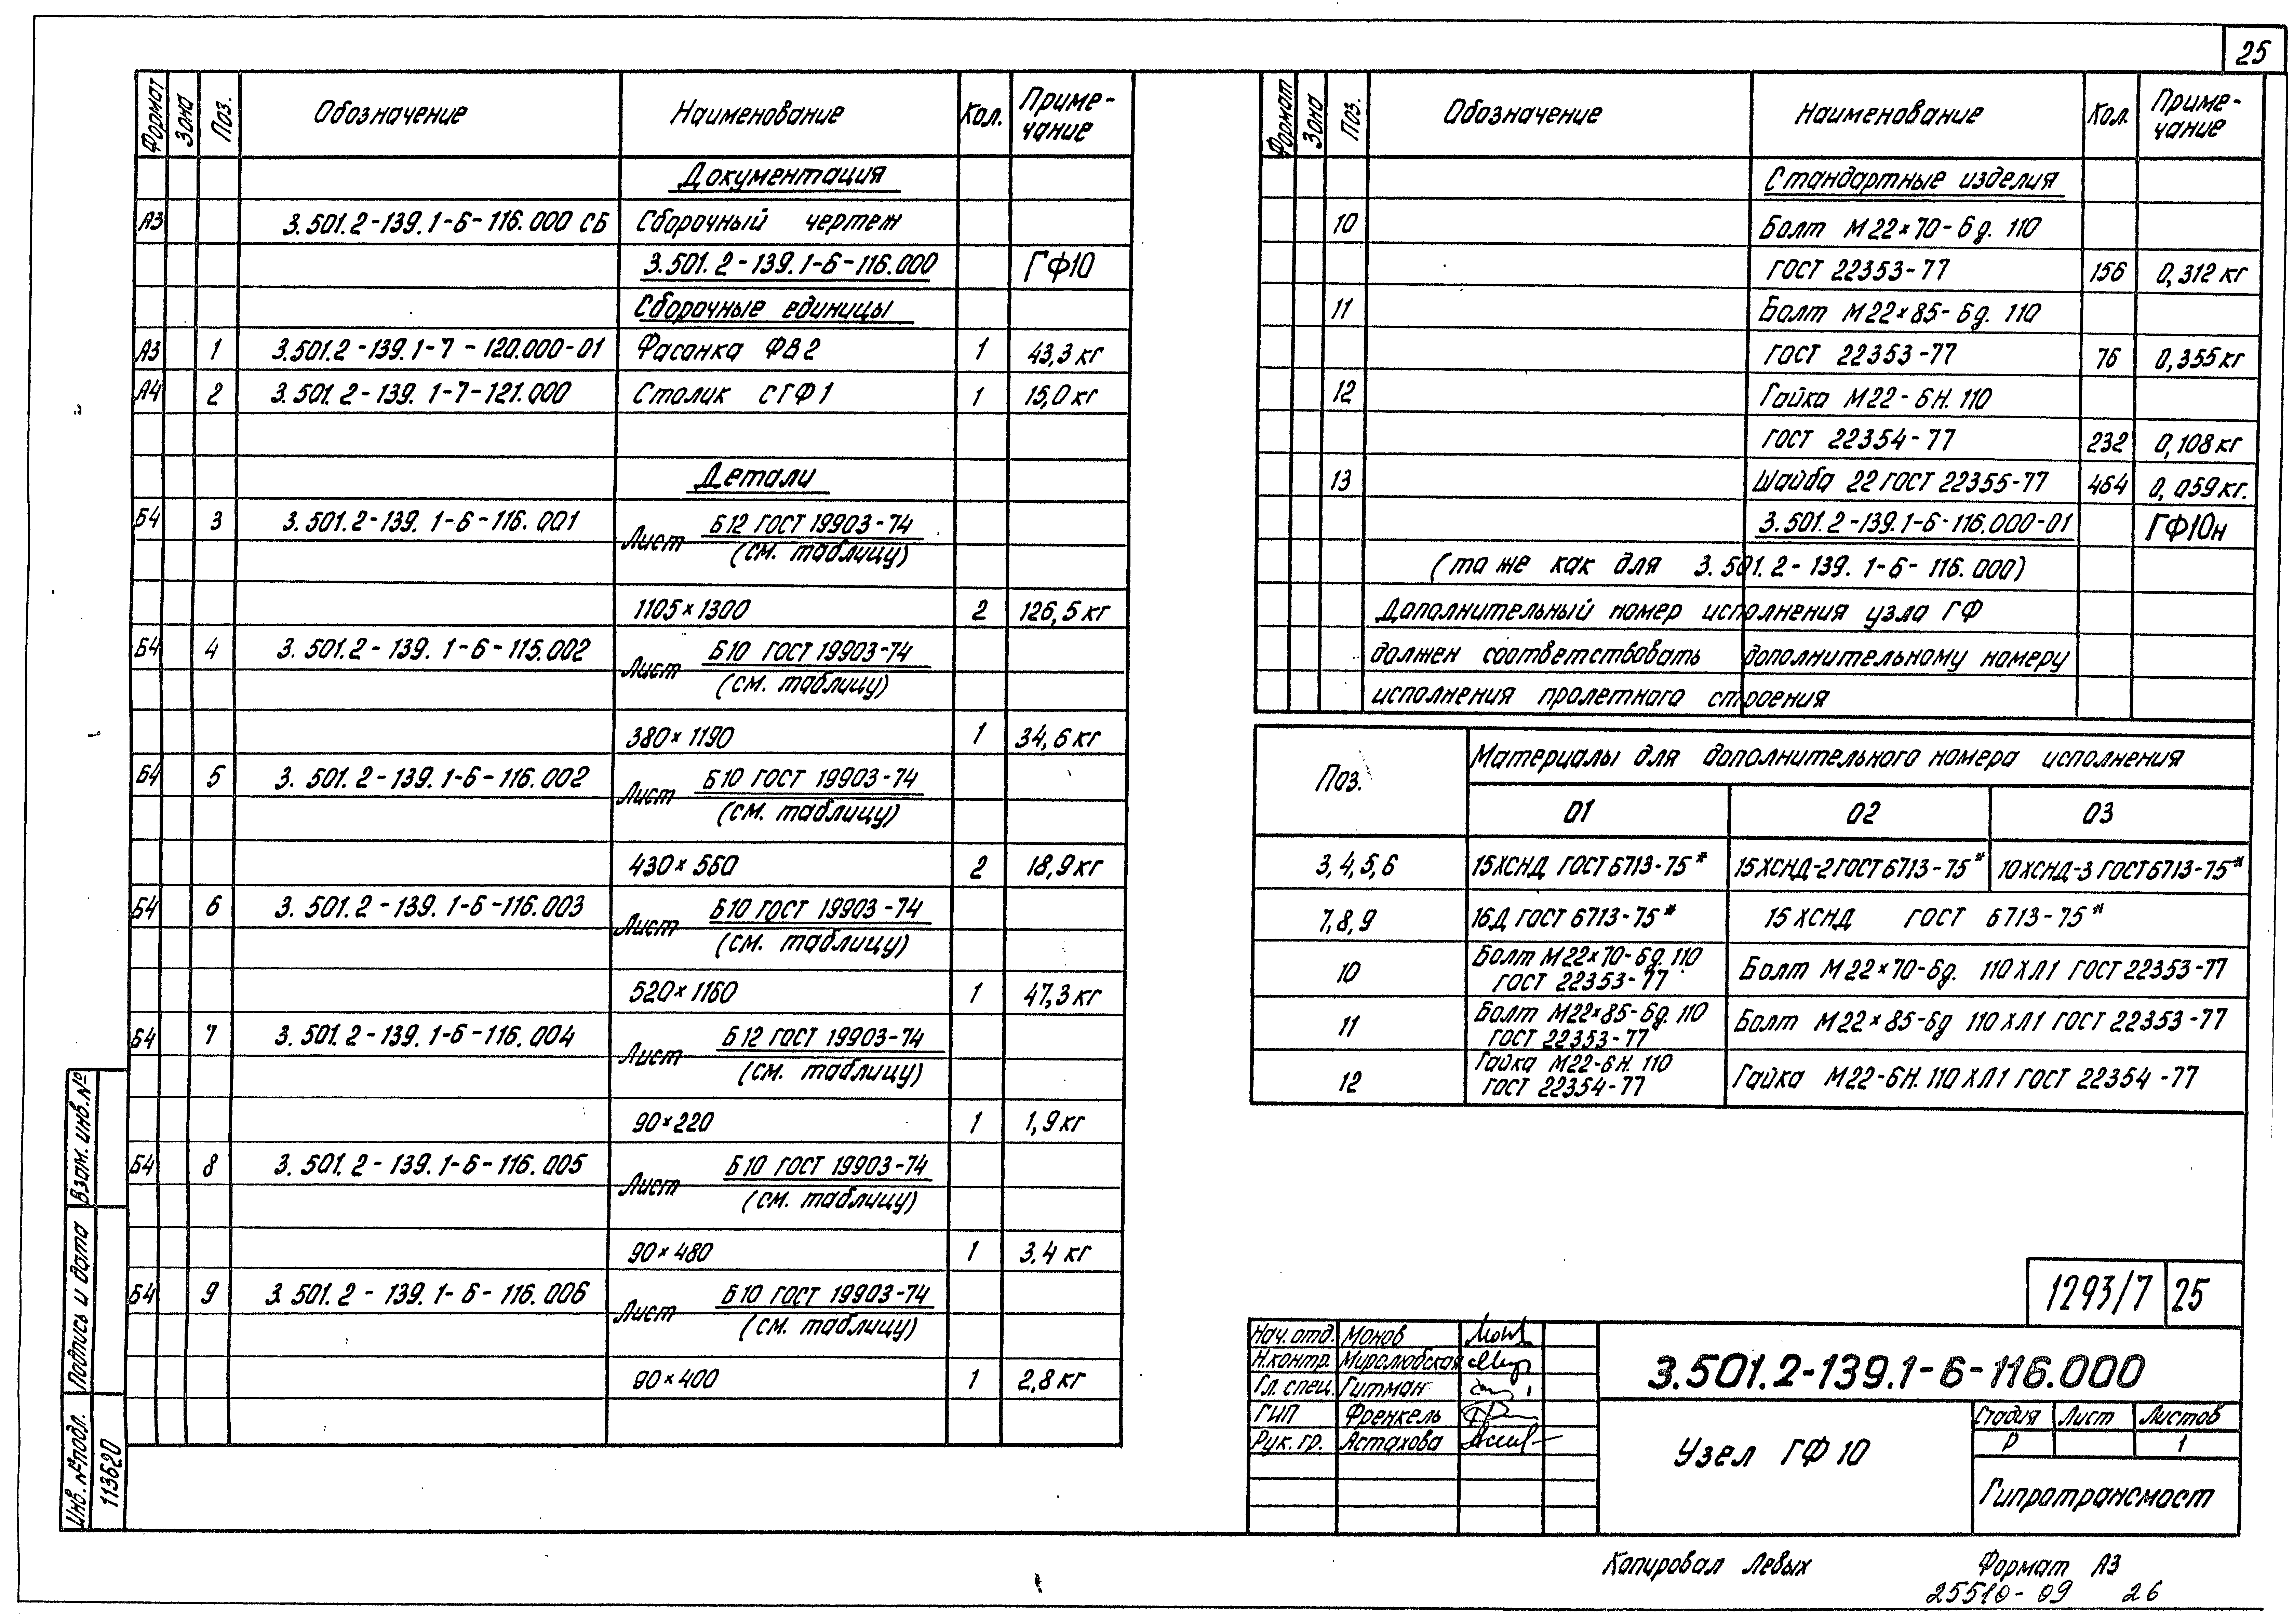 25
Формат Зона Поз. Обозначение Наименование Кол. Приме-
чание
Документация
А3 3.501.2-139.1-6-116.000 СБ Сборочный чертеж
3.501.2-139.1-6-116.000 ГФ10
Сборочные единицы
А3 1 3.501.2-139.1-7-120.000-01 Фасонка ФВ2 1 43,3 кг
А4 2 3.501.2-139.1-7-121.000 Столик СГФ1 1 15,0 кг
Детали
Б4 3 3.501.2-139.1-6-116.001 Лист Б12 ГОСТ 19903-74
(см. таблицу)
1105×1300 2 126,5 кг
Б4 4 3.501.2-139.1-6-115.002 Лист Б10 ГОСТ 19903-74
(см. таблицу)
380×1190 1 34,6 кг
Б4 5 3.501.2-139.1-6-116.002 Лист Б10 ГОСТ 19903-74
(см. таблицу)
430×560 2 18,9 кг
Б4 6 3.501.2-139.1-6-116.003 Лист Б10 ГОСТ 19903-74
(см. таблицу)
520×1160 1 47,3 кг
Б4 7 3.501.2-139.1-6-116.004 Лист Б12 ГОСТ 19903-74
(см. таблицу)
90×220 1 1,9 кг
Б4 8 3.501.2-139.1-6-116.005 Лист Б10 ГОСТ 19903-74
(см. таблицу)
90×480 1 3,4 кг
Б4 9 3.501.2-139.1-6-116.006 Лист Б10 ГОСТ 19903-74
(см. таблицу)
90×400 1 2,8 кг
Формат Зона Поз. Обозначение Наименование Кол. Приме-
чание
Стандартные изделия
10 Болт М22×70-6g. 110
ГОСТ 22353-77 156 0,312 кг
11 Болт М22×85-6g. 110
ГОСТ 22353-77 76 0,355 кг
12 Гайка М22-6Н. 110
ГОСТ 22354-77 232 0,108 кг
13 Шайба 22 ГОСТ 22355-77 464 0,059 кг.
3.501.2-139.1-6-116.000-01 ГФ10н
(то же как для 3.501.2-139.1-6-116.000)
Дополнительный номер исполнения узла ГФ
должен соответствовать дополнительному номеру
исполнения пролетного строения
Поз. Материалы для дополнительного номера исполнения
01 02 03
3, 4, 5, 6 15ХСНД ГОСТ 6713-75* 15ХСНД-2 ГОСТ 6713-75* 10ХСНД-3 ГОСТ 6713-75*
7, 8, 9 16Д ГОСТ 6713-75* 15ХСНД ГОСТ 6713-75*
10 Болт М22×70-6g. 110
ГОСТ 22353-77 Болт М22×70-6g. 110 ХЛ1 ГОСТ 22353-77
11 Болт М22×85-6g. 110
ГОСТ 22353-77 Болт М22×85-6g 110 ХЛ1 ГОСТ 22353-77
12 Гайка М22-6Н. 110
ГОСТ 22354-77 Гайка М22-6Н. 110 ХЛ1 ГОСТ 22354-77
1293/7 25
Нач. отд. Монов
Н.контр. Миролюбская
Гл. спец. Гитман
ГИП Френкель
Рук. гр. Астахова
3.501.2-139.1-6-116.000
Узел ГФ 10
Стадия Лист Листов
Р 1
Гипротрансмост
Инв. № подл. Подпись и дата Взам. инв. №
113620
Копировал Левых Формат А3
25510-09 26